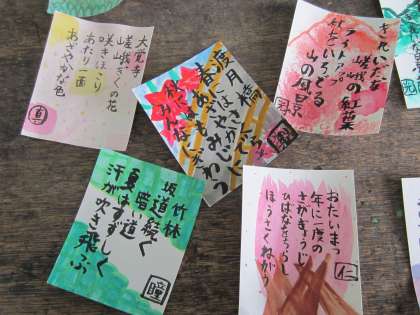 きれいだな
嵯峨の紅葉
ライトアップ
秋をいろどる
山の風景
渡月橋
大覚寺
嵯峨ぎくの花
咲きほこり
あたり一面
あざやかな色
おたいまつ
年に一度の
さがぎょうじ
ひばなをちらし
ほうさくねがう
仁
竹林
坂道続く
暗い道
夏はすずしく
汗が吹き飛ぶ
瞳